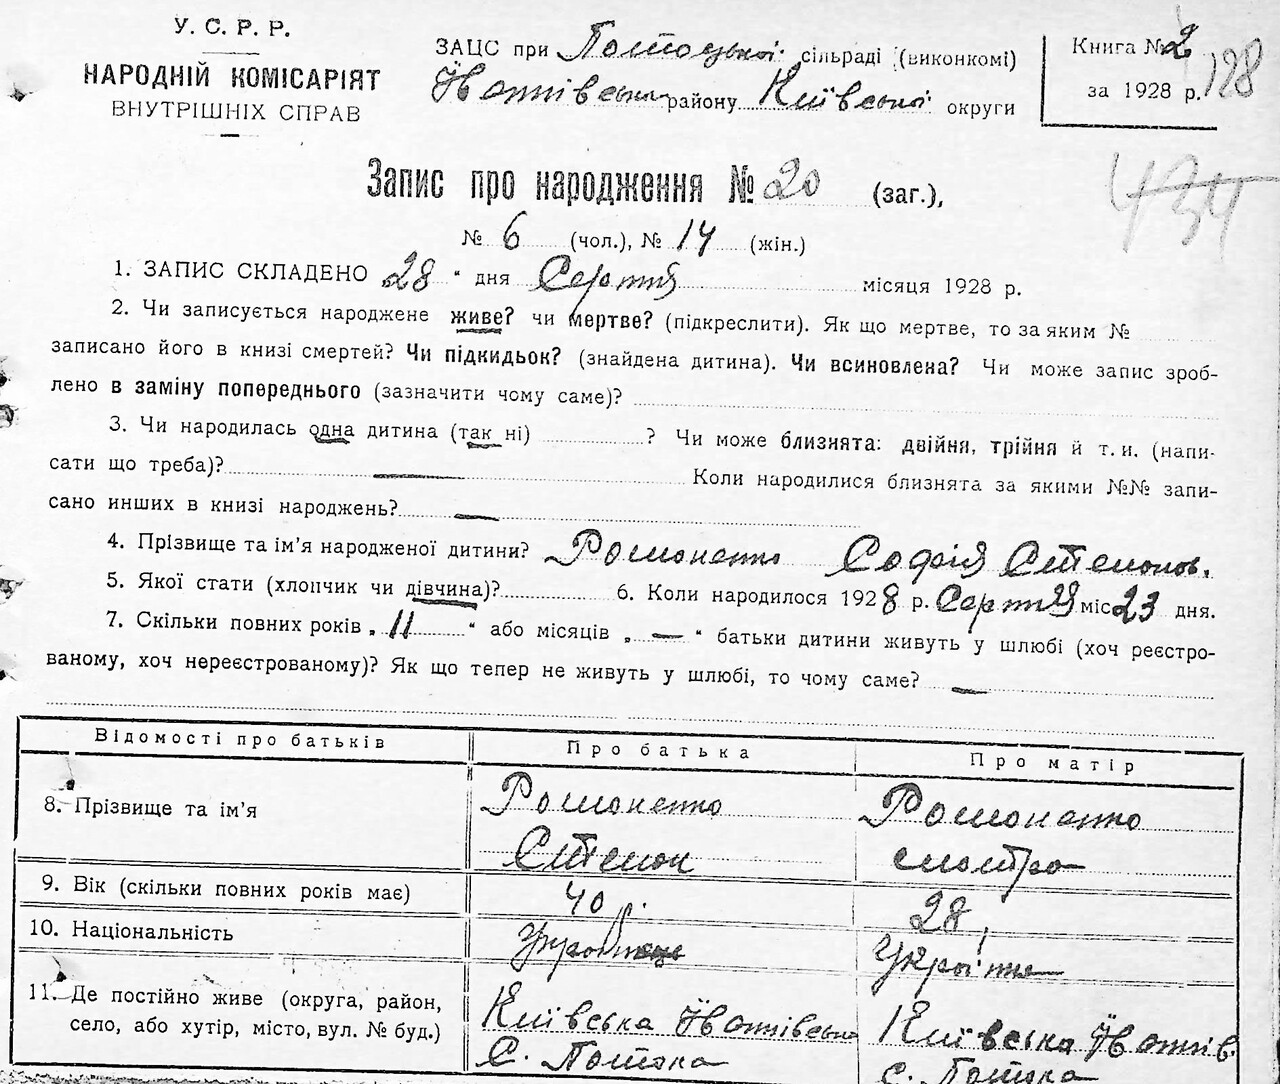 У. С. Р. Р.
НАРОДНІЙ КОМІСАРІЯТ
ВНУТРІШНІХ СПРАВ
ЗАЦС при Потоцької сільраді (виконкомі)
району Київської округи
Книга № 2
за 1928 р.
128
434
Запис про народження № 20 (заг.),
№ 6 (чол.), № 14 (жін.)
1. ЗАПИС СКЛАДЕНО 28 " дня Серпня місяця 1928 р.
2. Чи записується народжене живе? чи мертве? (підкреслити). Як що мертве, то за яким №
записано його в книзі смертей? Чи підкидьок? (знайдена дитина). Чи всиновлена? Чи може запис зроб-
лено в заміну попереднього (зазначити чому саме)?
3. Чи народилась одна дитина (так ні) ? Чи може близнята: двійня, трійня й т. и. (напи-
сати що треба)? — Коли народилися близнята за якими №№ запи-
сано инших в книзі народжень? —
4. Прізвище та ім'я народженої дитини? Романенко Софія Степанов.
5. Якої стати (хлопчик чи дівчина)? 6. Коли народилося 1928 р. Серпня міс 23 дня.
7. Скільки повних років „ 11 " або місяців „ — " батьки дитини живуть у шлюбі (хоч реєстро-
ваному, хоч нереєстрованому)? Як що тепер не живуть у шлюбі, то чому саме? —
Відомості про батьків Про батька Про матір
8. Прізвище та ім'я Романенко Романенко
Степан
9. Вік (скільки повних років має) 40 28
10. Національність Українка
11. Де постійно живе (округа, район, Київська Київська
село, або хутір, місто, вул. № буд.) С. Потока С. Потока